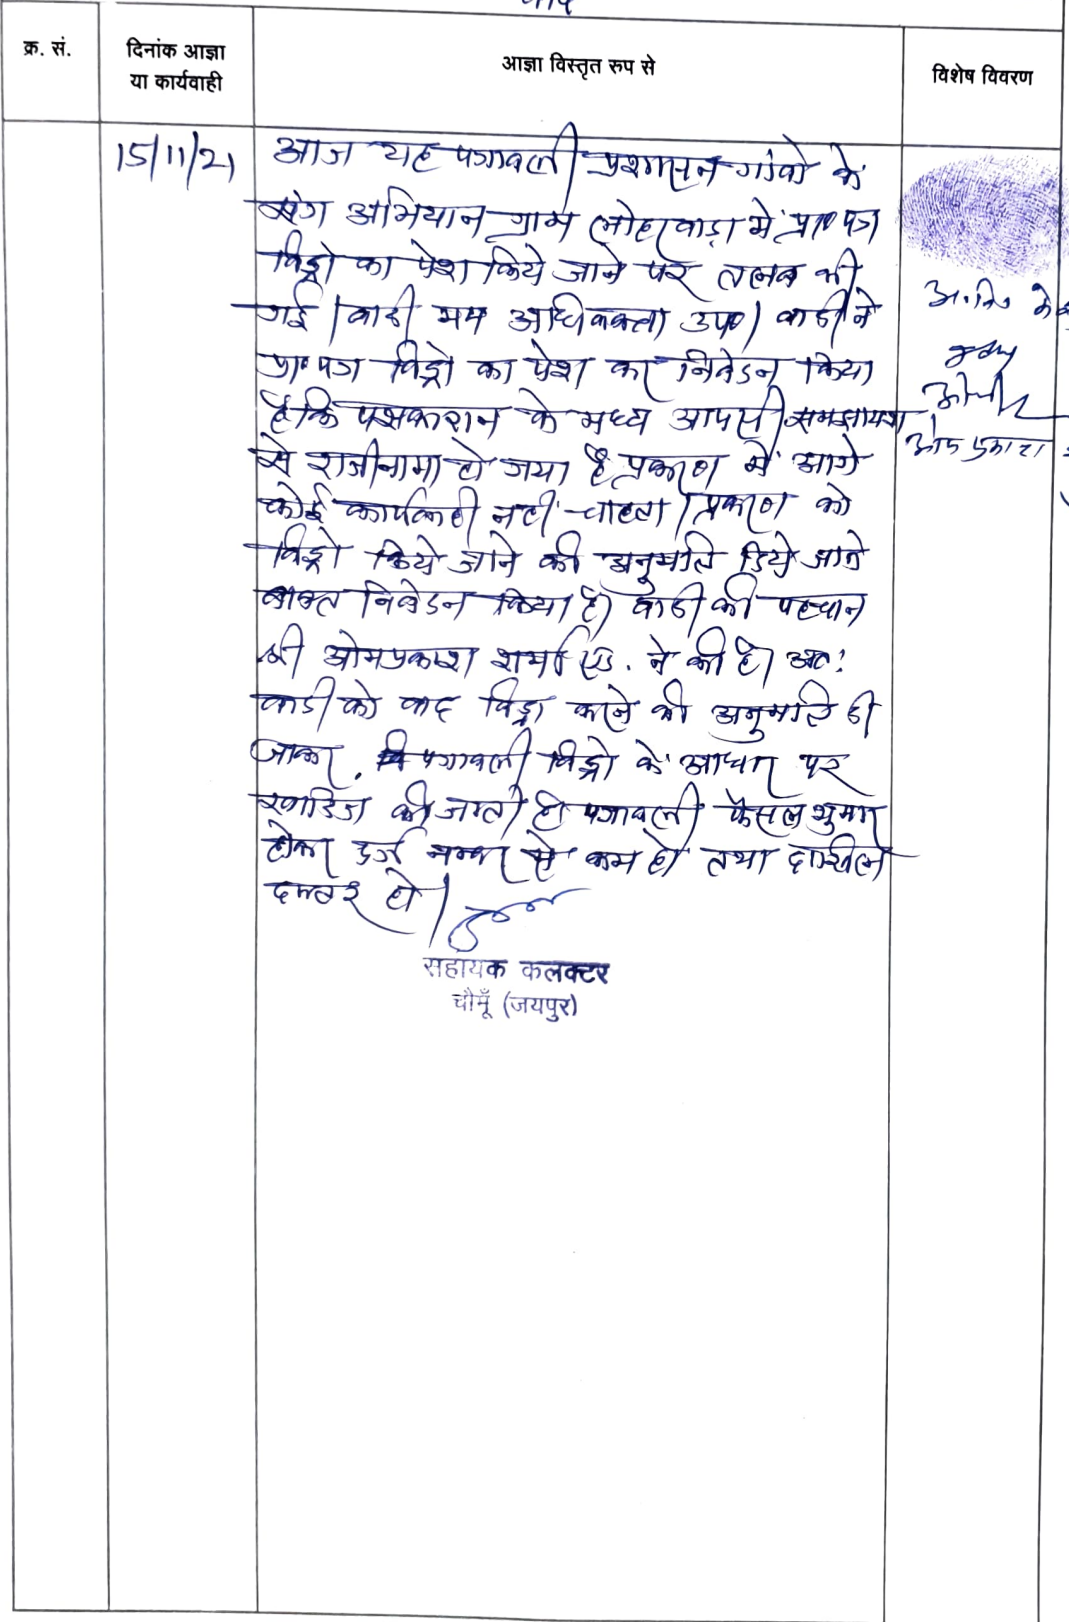 क्र. सं.
दिनांक आज्ञा
या कार्यवाही
आज्ञा विस्तृत रुप से
विशेष विवरण
15/11/21
आज यह पत्रावली प्रशासन गांवो के
संग अभियान ग्राम लोहरवाड़ा में प्रा० पत्र
विड्रो का पेश किये जाने पर तलब की
गई। वादी मय अधिवक्ता उप०। वादी ने
प्रा० पत्र विड्रो का पेश कर निवेदन किया
है कि पक्षकारान के मध्य आपसी समझायश
से राजीनामा हो गया है प्रकरण में आगे
कोई कार्यवाही नहीं चाहता। प्रकरण को
विड्रो किये जाने की अनुमति दिये जाने
बाबत निवेदन किया है। वादी की पहचान
श्री ओमप्रकाश शर्मा एड. ने की है। अतः
वादी को वाद विड्रा करने की अनुमति दी
जाकर, पत्रावली विड्रो के आधार पर
खारिज की जाती है। पत्रावली फैसल शुमार
होकर दर्ज नम्बर से कम हो तथा दाखिल
दफ्तर हो।
सहायक कलक्टर
चौमूँ (जयपुर)
अ.नि.
ओमप्रकाश